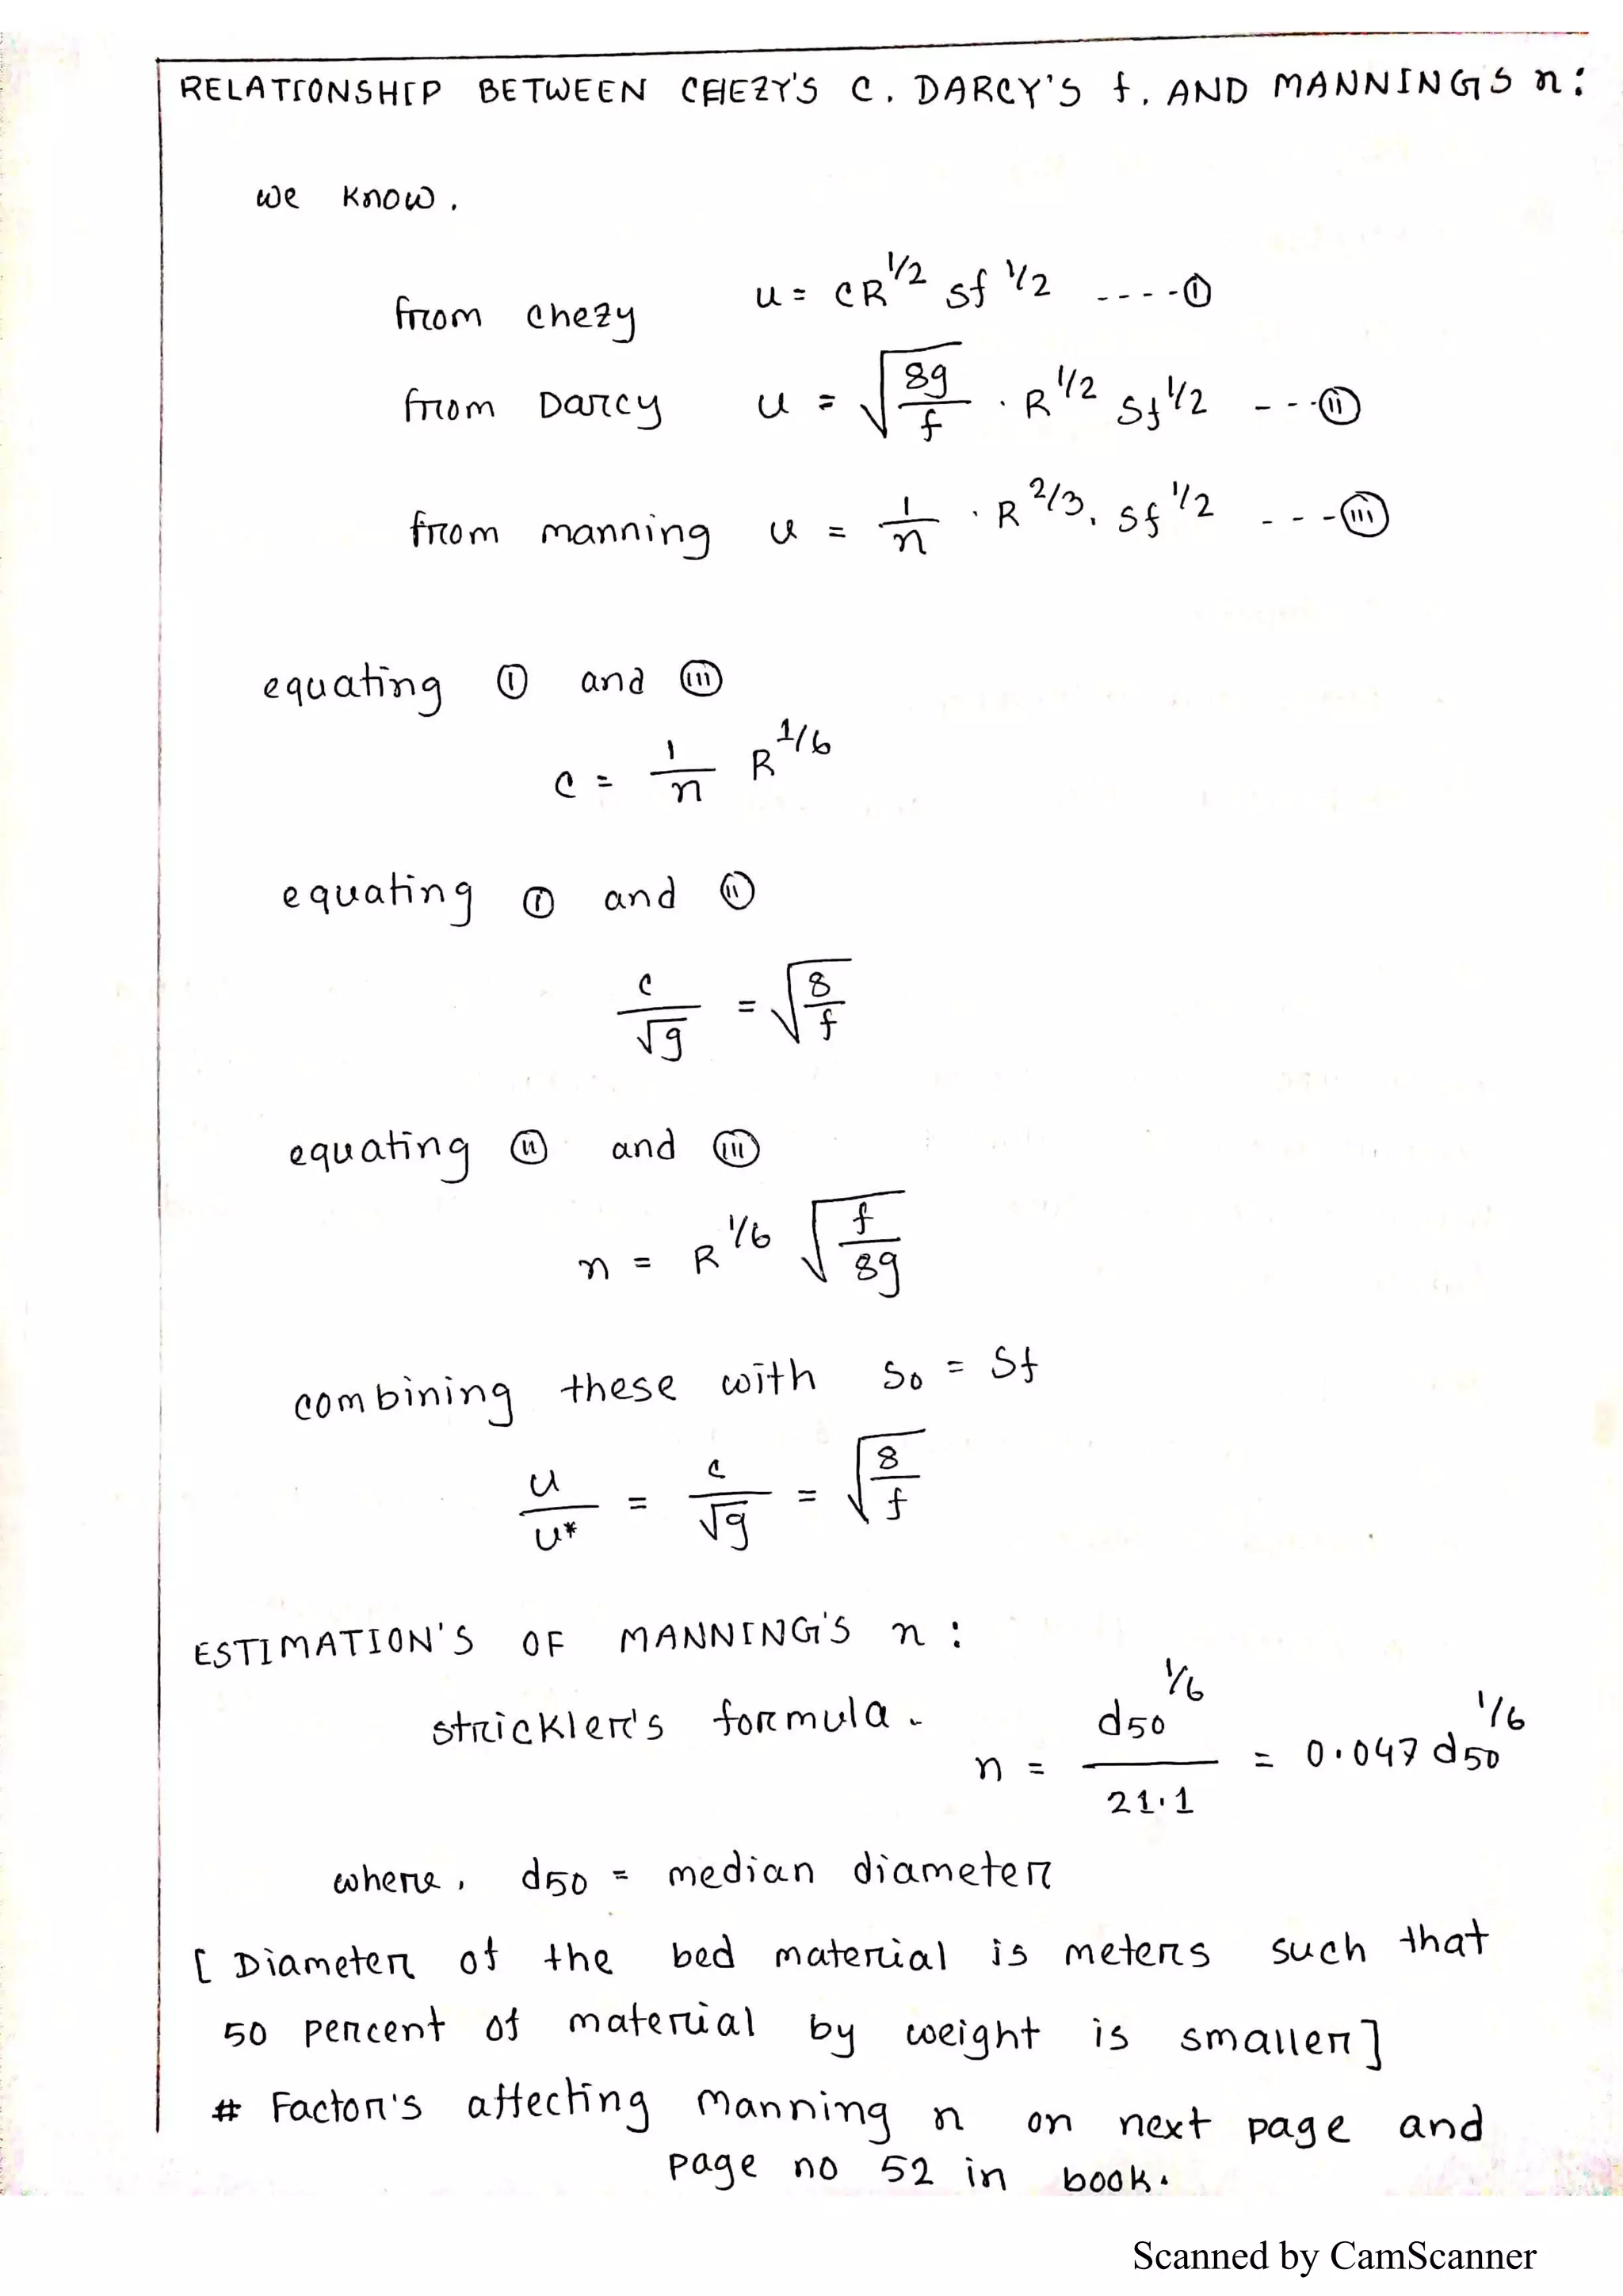 RELATIONSHIP BETWEEN CHEZY'S C, DARCY'S f, AND MANNING'S n:
we know,
from chezy u = CR^1/2 Sf^1/2 ----(i)
from Darcy u = √(8g/f) · R^1/2 Sf^1/2 ---(ii)
from manning u = 1/n · R^2/3 . Sf^1/2 ---(iii)
equating (i) and (iii)
c = 1/n R^1/6
equating (i) and (ii)
c/√g = √(8/f)
equating (ii) and (iii)
n = R^1/6 √(f/8g)
combining these with So = Sf
u/u* = c/√g = √(8/f)
ESTIMATION'S OF MANNING'S n :
strickler's formula - n = d50^1/6 / 21.1 = 0.047 d50^1/6
where, d50 = median diameter
[ Diameter of the bed material is meters such that
50 percent of material by weight is smaller]
# Factor's affecting Manning n on next page and
page no 52 in book.
Scanned by CamScanner